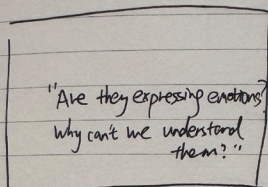 "Are they expressing emotions?
why can't we understand
them?"